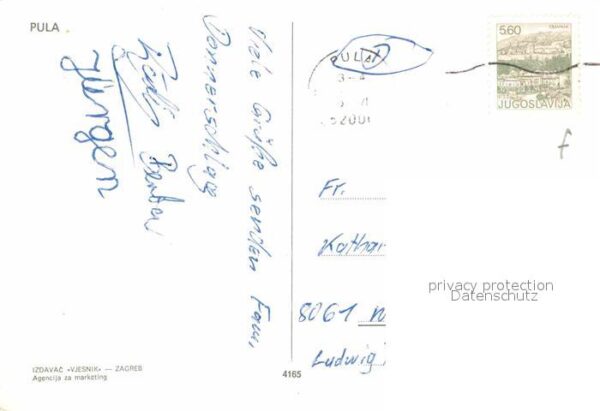 PULA
Viele Grüße senden Fam.
Donnerschlag
Jürgen
PULA
52000
TRAVNIK
5.60
JUGOSLAVIJA
f
Fr.
Kathar
8061
Ludwig
privacy protection
Datenschutz
IZDAVAČ «VJESNIK» — ZAGREB
Agencija za marketing
4165